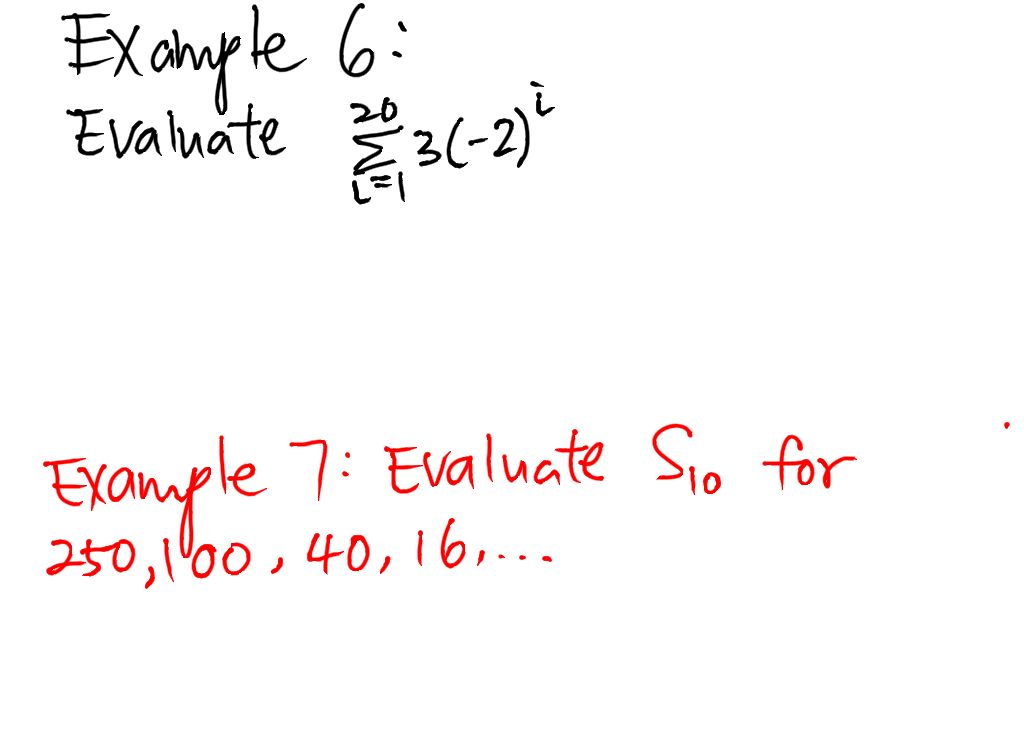 Example 6:
Evaluate \sum_{i=1}^{20} 3(-2)^i
Example 7: Evaluate S₁₀ for
250, 100, 40, 16, ...